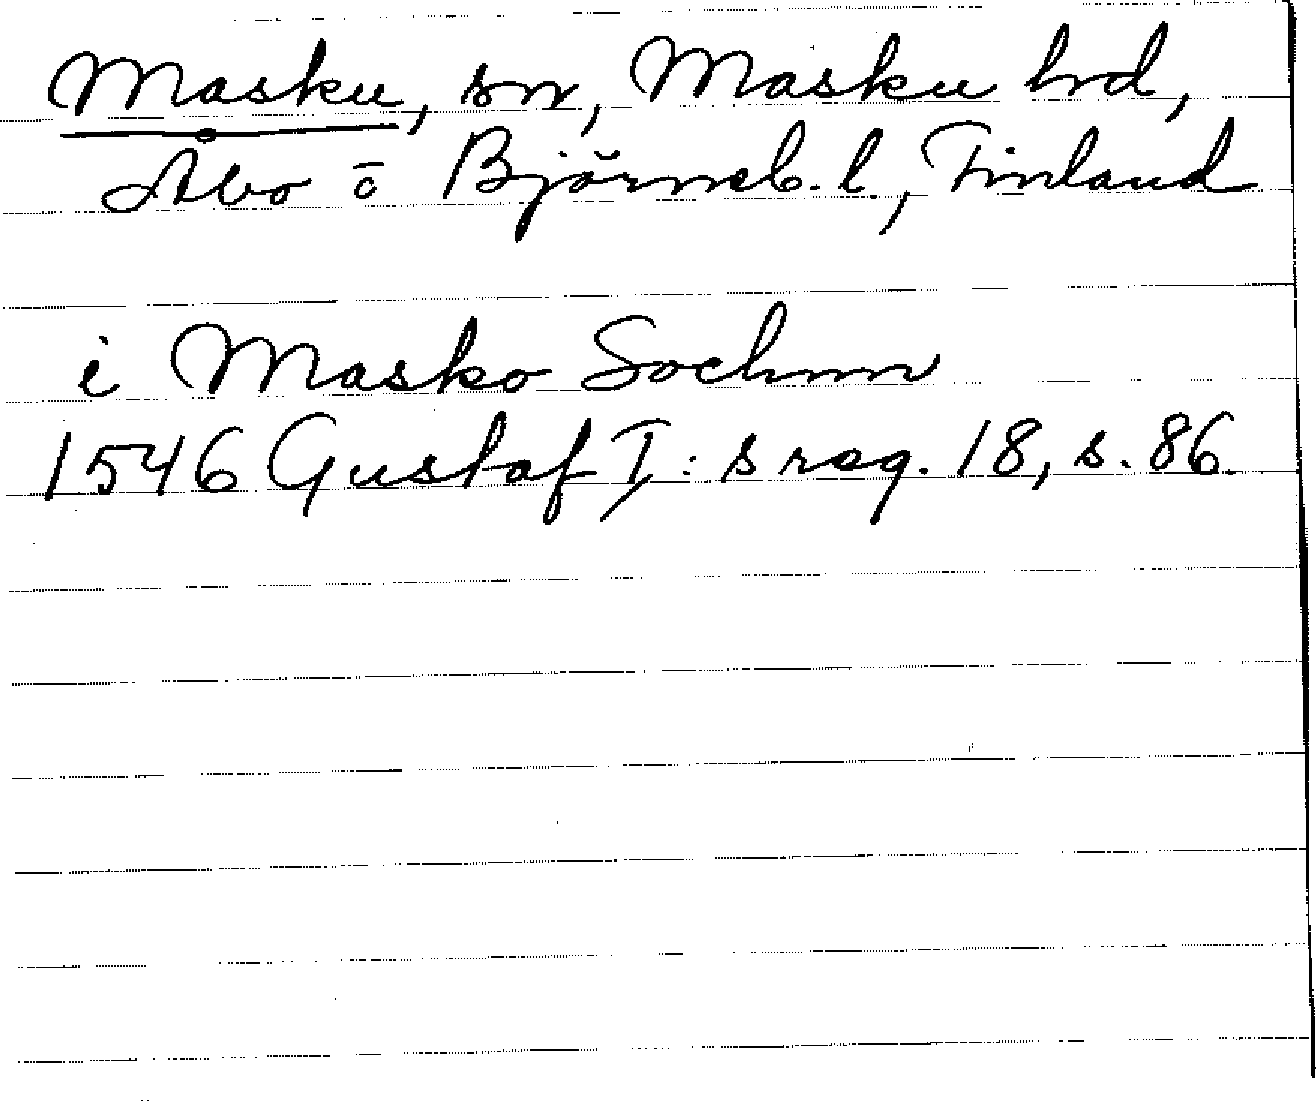 Masku, sn, Masku hrd,
Åbo o Björneb. l., Finland
i Masko Sochnn
1546 Gustaf I: s reg. 18, s. 86.